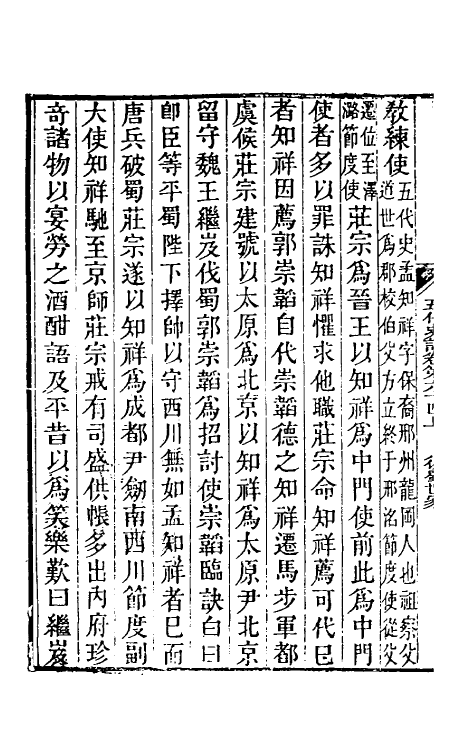 教練使五代史孟知祥字保裔邢州龍岡人也祖察父
道世爲郡校伯父方立終于邢洺節度使從父
遷位至澤
潞節度使莊宗爲晉王以知祥爲中門使前此爲中門
使者多以罪誅知祥懼求他職莊宗命知祥薦可代巳
者知祥因薦郭崇韜自代崇韜德之知祥遷馬步軍都
虞候莊宗建號以太原爲北京以知祥爲太原尹北京
留守魏王繼岌伐蜀郭崇韜爲招討使崇韜臨訣白曰
卽臣等平蜀陛下擇帥以守西川無如孟知祥者巳而
唐兵破蜀莊宗遂以知祥爲成都尹劒南西川節度副
大使知祥馳至京師莊宗戒有司盛供帳多出內府珍
奇諸物以宴勞之酒酣語及平昔以爲笑樂歎曰繼岌
五代史記卷六十四上
後蜀世家